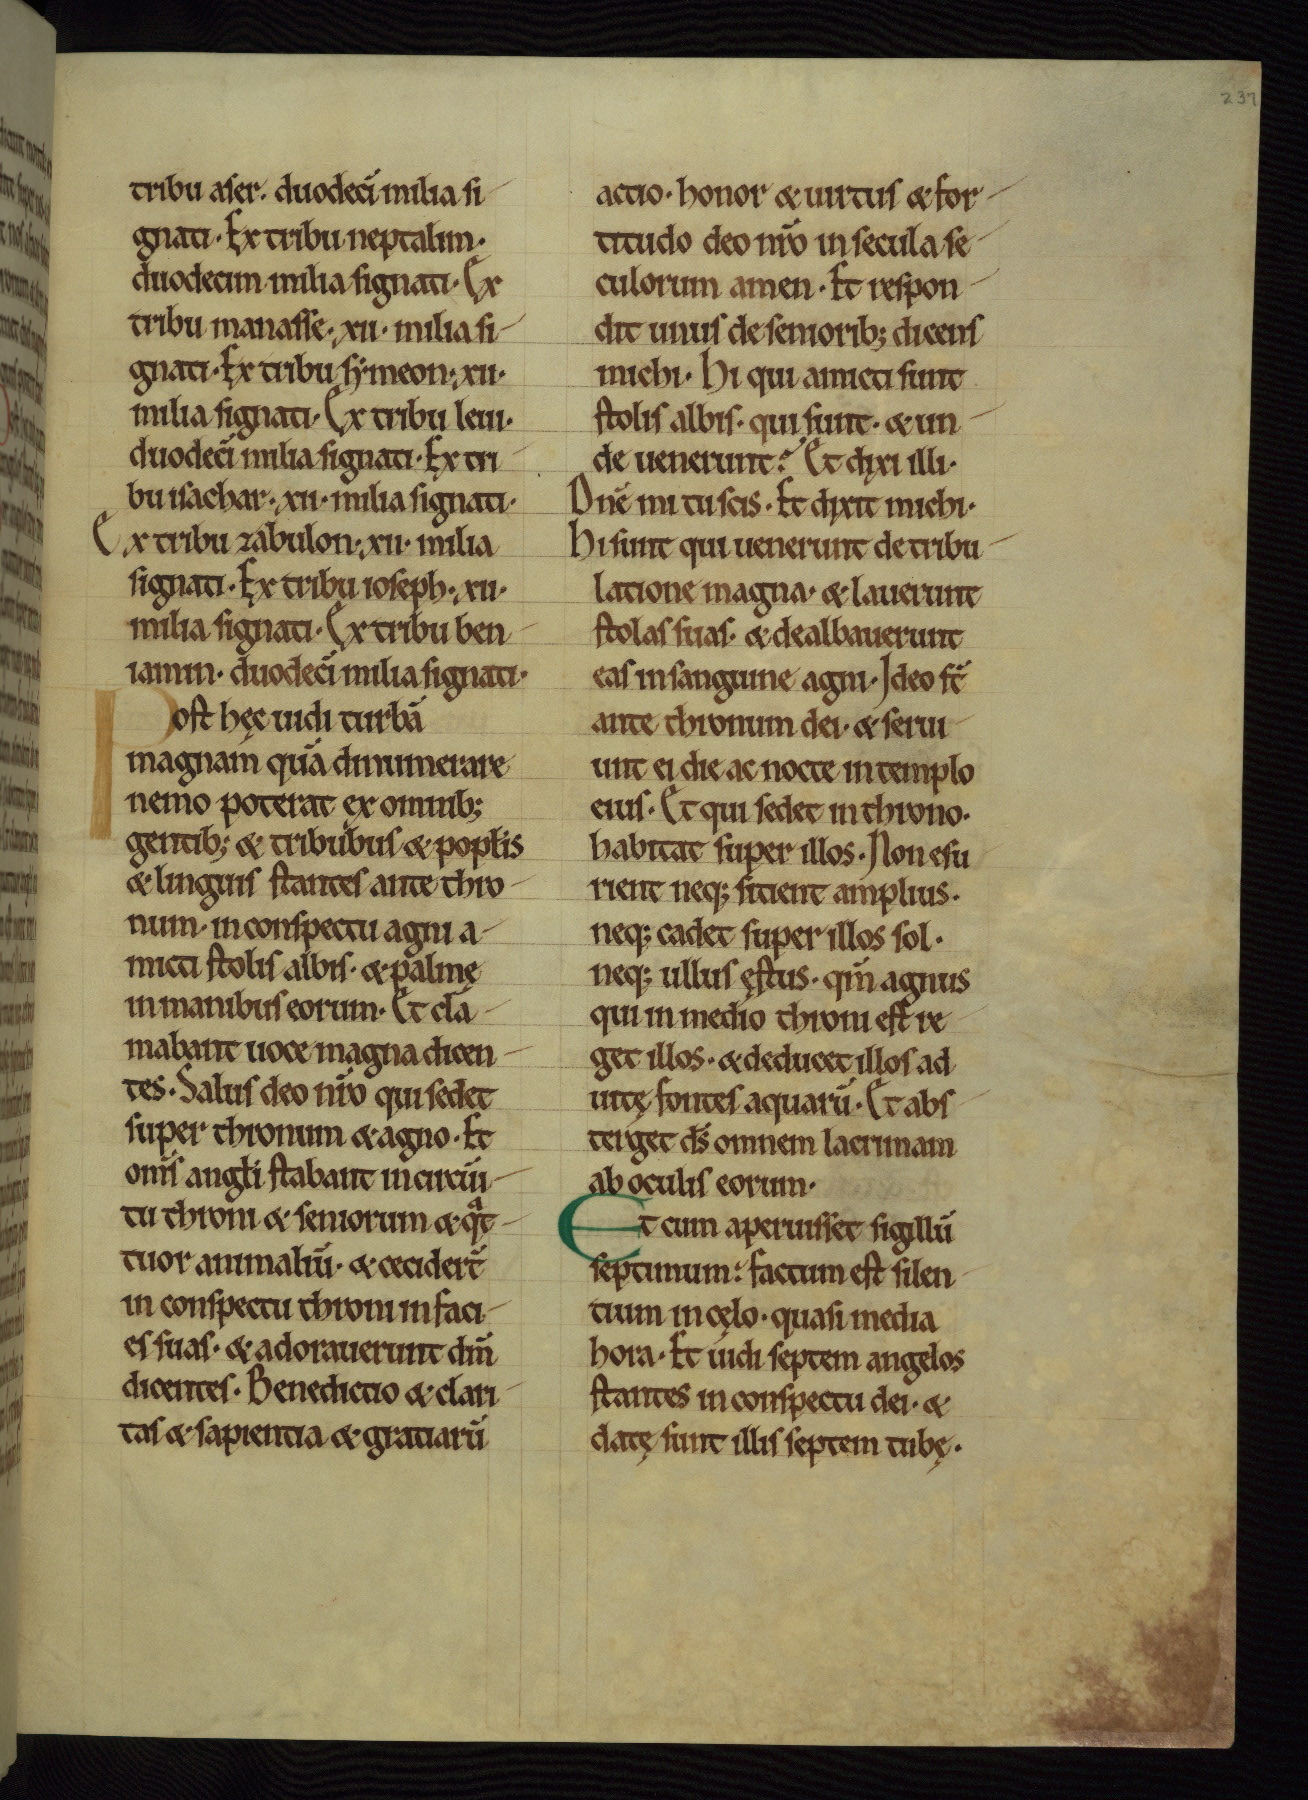 237
tribu aser. duodecī milia si-
gnati. Ex tribu neptalim.
duodecim milia signati. Ex
tribu manasse. xii. milia si-
gnati. Ex tribu symeon. xii.
milia signati. Ex tribu leui.
duodecī milia signati. Ex tri-
bu isachar. xii. milia signati.
Ex tribu zabulon. xii. milia
signati. Ex tribu ioseph. xii.
milia signati. Ex tribu ben-
iamin. duodecī milia signati.
Post hęc uidi turbā
magnam quā dinumerare
nemo poterat ex omnib;
gentib; & tribubus & poplis
& linguis stantes ante thro-
num. in conspectu agni a-
micti stolis albis. & palmę
in manibus eorum. Et cla-
mabant uoce magna dicen-
tes. Salus deo nr̄o qui sedet
super thronum & agno. Et
om̄s angłi stabant in circui-
tu throni & seniorum & qͣt-
tuor animaliū. & cecidert̄
in conspectu throni in faci-
es suas. & adorauerunt dm̄
dicentes. Benedictio & clari-
tas & sapientia & gratiarū
actio. honor & uirtus & for-
titudo deo nr̄o in secula se-
culorum amen. Et respon-
dit unus de seniorib; dicens
michi. Hi qui amicti sunt
stolis albis. qui sunt. & un-
de uenerunt? Et dixi illi.
Dn̄e mi tu scis. Et dixit michi.
Hi sunt qui uenerunt de tribu-
latione magna. & lauerunt
stolas suas. & dealbauerunt
eas in sanguine agni. Ideo st̄
ante thronum dei. & serui-
unt ei die ac nocte in templo
eius. Et qui sedet in throno.
habitat super illos. Non esu-
rient neq; sitient amplius.
neq; cadet super illos sol.
neq; ullus ęstus. qm̄ agnus
qui in medio throni est re-
get illos. & deducet illos ad
uitę fontes aquarū. Et abs-
terget ds̄ omnem lacrimam
ab oculis eorum.
Et cum aperuisset sigillū
septimum: factum est silen-
tium in cęlo. quasi media
hora. Et uidi septem angelos
stantes in conspectu dei. &
datę sunt illis septem tubę.